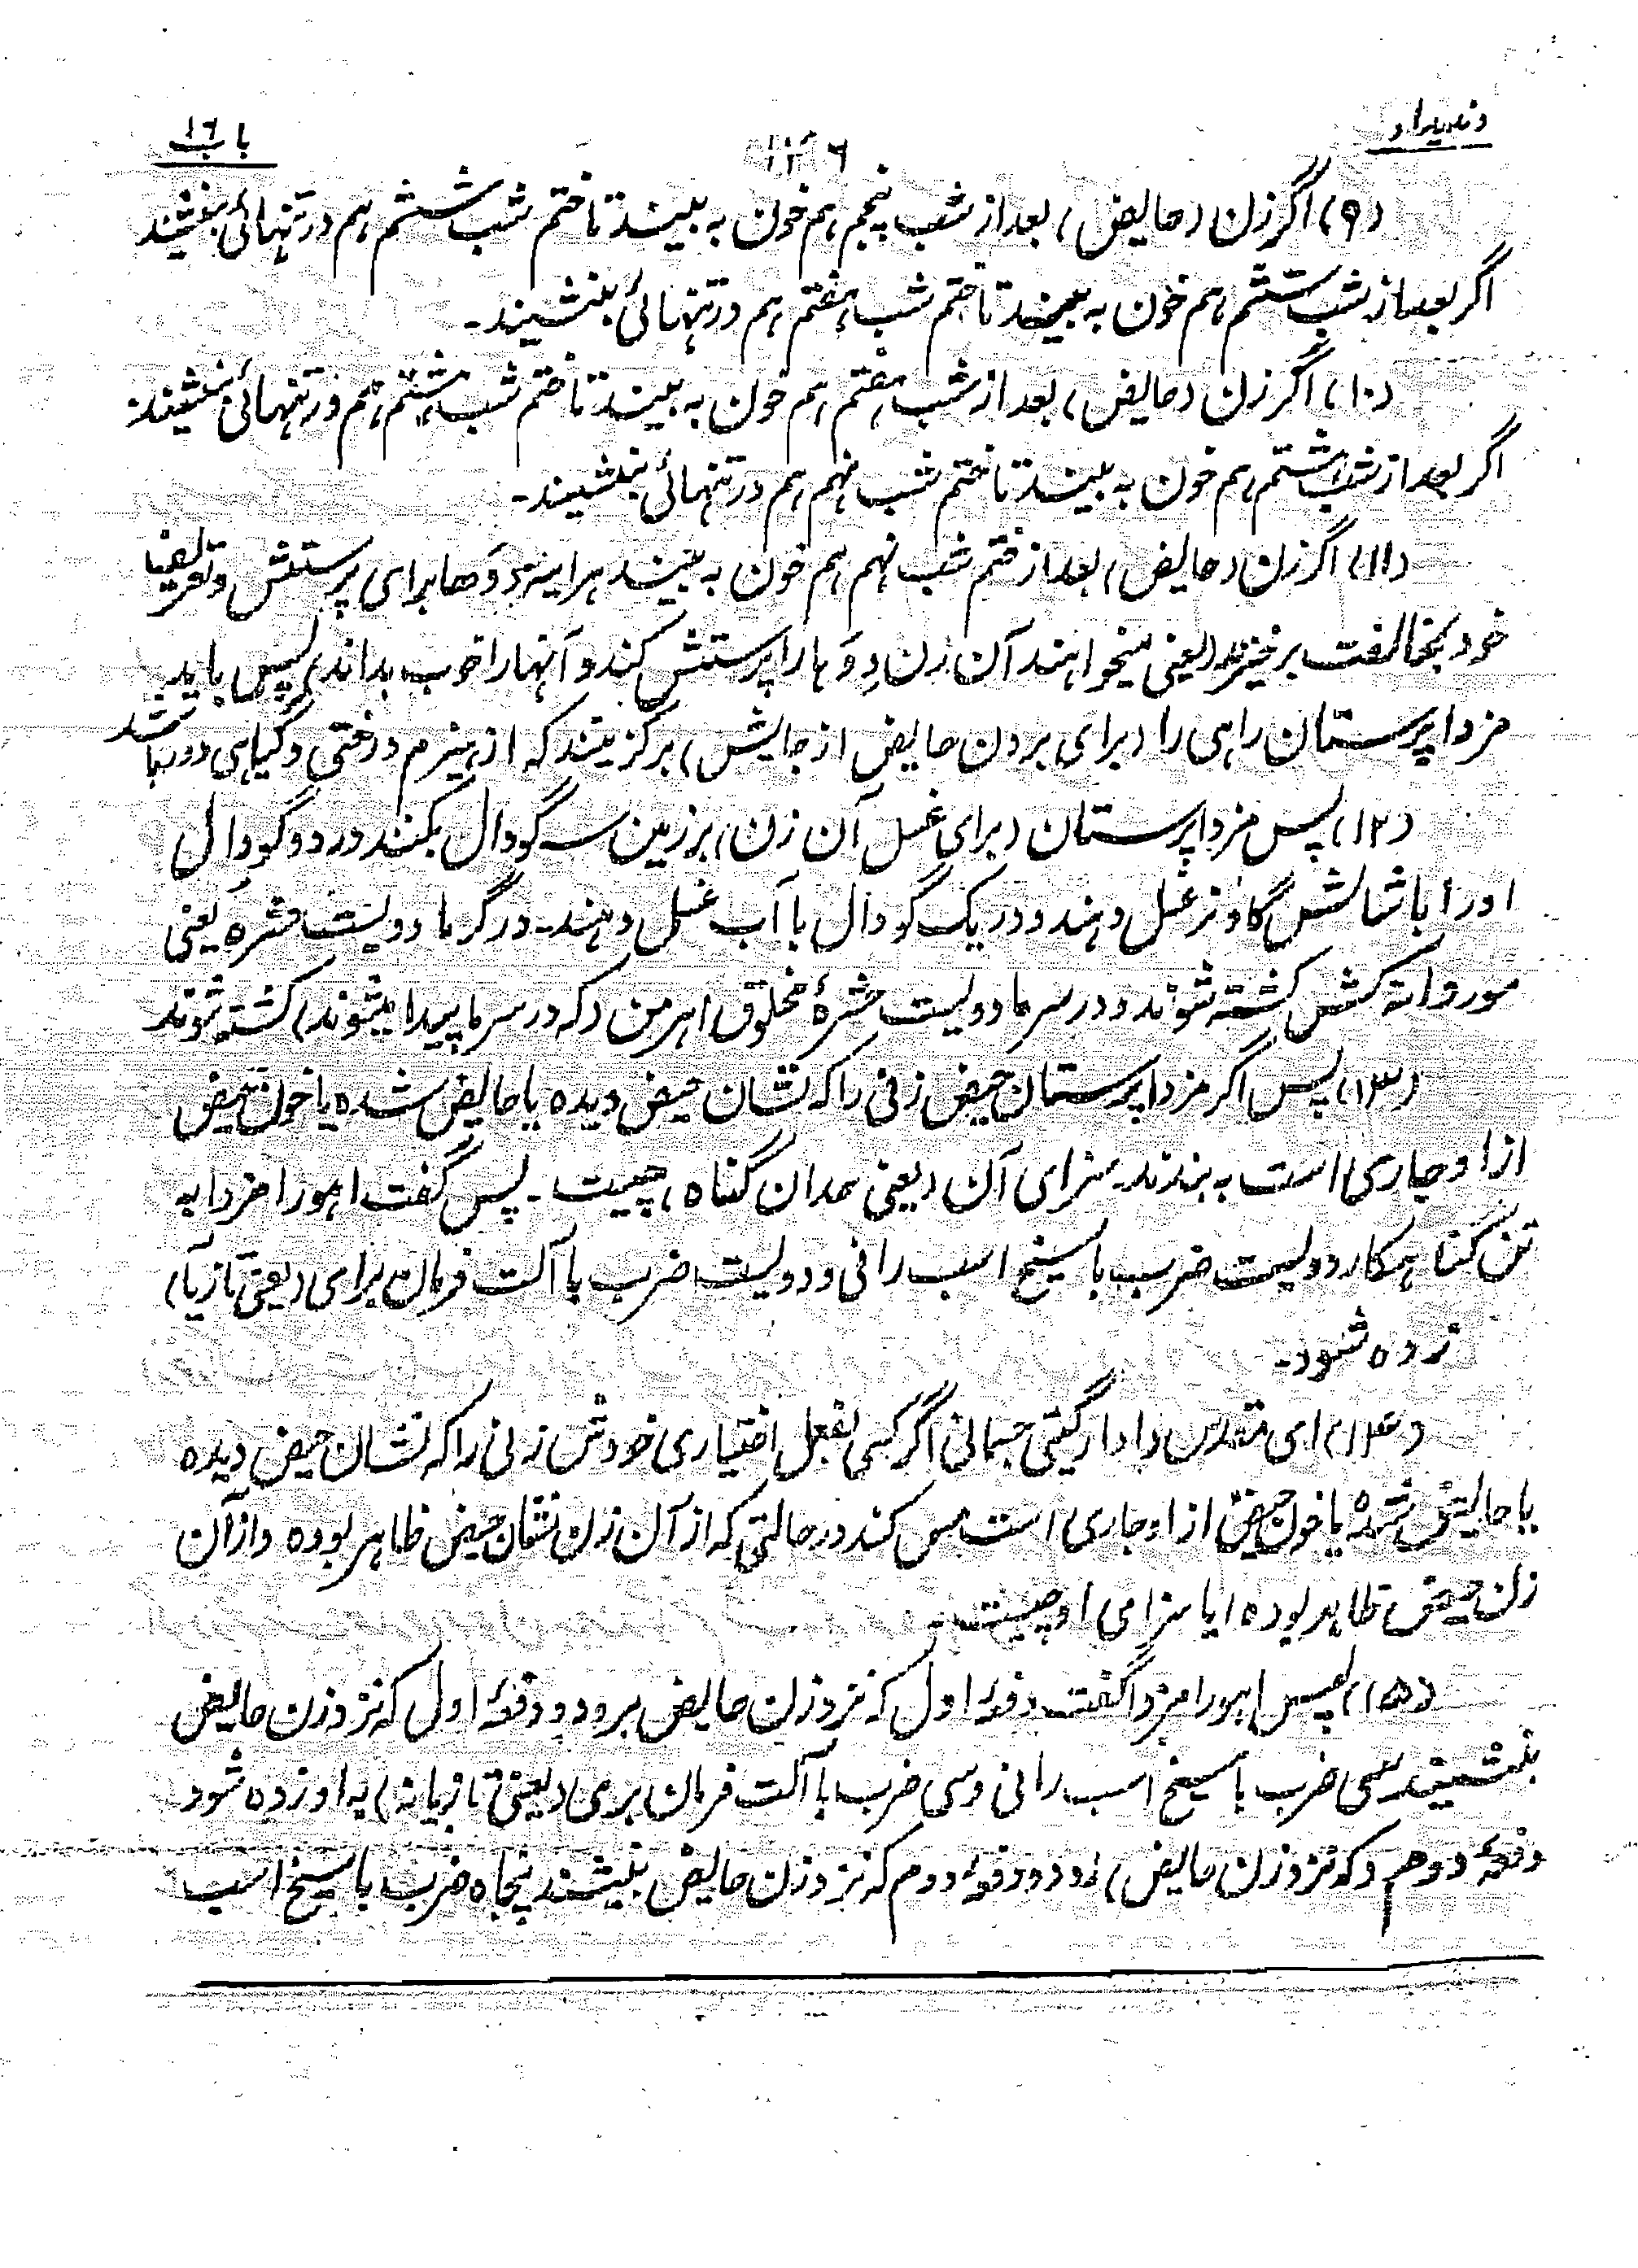 وندیداد
باب ١٦
(٩) اگر زن (حایض) بعد از شب پنجم هم خون به بیند تا ختم شب ششم هم در تنهائی بنشیند
اگر بعد از شب ششم هم خون به بیند تا ختم شب هفتم هم در تنهائی بنشیند۔
(١٠) اگر زن (حایض) بعد از شب هفتم هم خون به بیند تا ختم شب هشتم هم در تنهائی بنشیند۔
اگر بعد از شب هشتم هم خون به بیند تا ختم شب نهم هم در تنهائی بنشیند۔
(١١) اگر زن (حایض) بعد از ختم شب نهم هم خون به بیند هراینه دِوَها برای پرستش و تعریف
خود بمخالفت برخیزند (یعنی میخواهند آن زن دِوَها را پرستش کند و آنها را خوب بداند) پس باید
مزداپرستان راهی را (برای بردن حایض از جایش) برگزینند که از هیزم درختی و گیاهی دور باشد
(١٢) پس مزداپرستان (برای غسل آن زن) بر زمین سه گودال بکنند در دو گودال
اورا با شاش گاو نر غسل دهند و در یک گودال با آب غسل دهند۔ در گرما دویست حشره یعنی
مور دانه کش کشته شوند و در سرما دویست حشرهٔ مخلوق اهرمن (که در سرما پیدا میشوند) کشته شوند
(١٣) پس اگر مزداپرستان حیض زنی را که نشان حیض دیده یا حایض شده یا خون حیض
از او جاری است به بندند۔ سزای آن (یعنی همدان گناه) چیست۔ پس گفت اهورا مزدا به
تن گناهکار دویست ضرب با سیخ اسب رانی و دویست ضرب با آلت فرمان برای (یعنی تازیا)
زده شود۔
(١٤) ای مقدس دادار گیتی جسمانی اگر کسی بفعل اختیاری خودش زنی را که نشان حیض دیده
یا حایض شده یا خون حیض از او جاری است مس کند در حالتی که از آن زن نشان حیض ظاهر بوده و از آن
زن حیض ظاهر بوده ایا سزای او چیست۔
(١٥) پس اهورا مزدا گفت دفعهٔ اول که نزد زن حایض برود و دفعهٔ اول که نزد زن حایض
بنشیند سی ضرب با سیخ اسب رانی و سی ضرب با آلت فرمان بری (یعنی تازیانه) به او زده شود
دفعهٔ دوم (که نزد زن حایض) رود و دفعهٔ دوم که نزد زن حایض بنشیند پنجاه ضرب با سیخ اسب